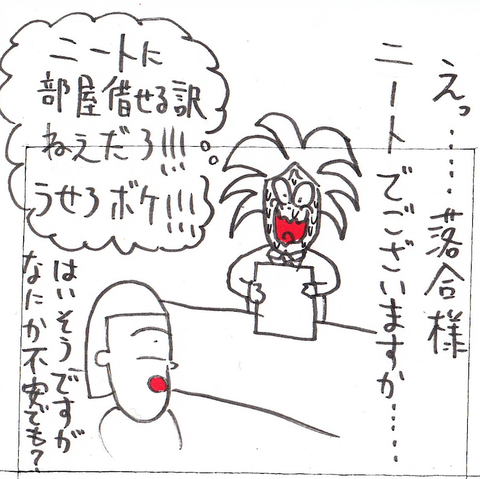 えっ……落合様
ニートでございますか……
ニートに
部屋借せる訳
ねえだろ!!!
うせろボケ!!!
はいそうですが
なにか不安でも?